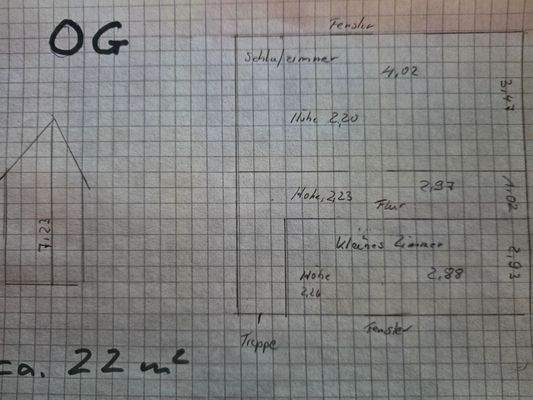 OG
Fenster
Schlafzimmer
4,02
3,47
Höhe 2,20
Höhe, 2,23
2,97
Flur
1,02
7,23
Kleines Zimmer
Höhe
2,26
2,88
2,93
Treppe
Fenster
ca. 22 m²